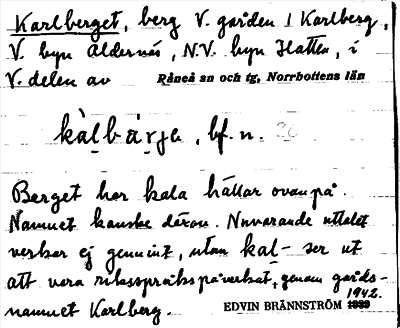 Karlberget, berg V. gården 1 Karlberg,
V. byn Aldernäs, N.V. byn Hatten, i
V. delen av Råneå sn och tg, Norrbottens län
kàlbárje, bf. n.
Berget har kala hällar ovanpå.
Namnet kanske därav. Nuvarande uttalet
verkar ej genuint, utan kal- ser ut
att vara riksspråkspåverkat, genom gårds-
namnet Karlberg. EDVIN BRÄNNSTRÖM 1939
1942.